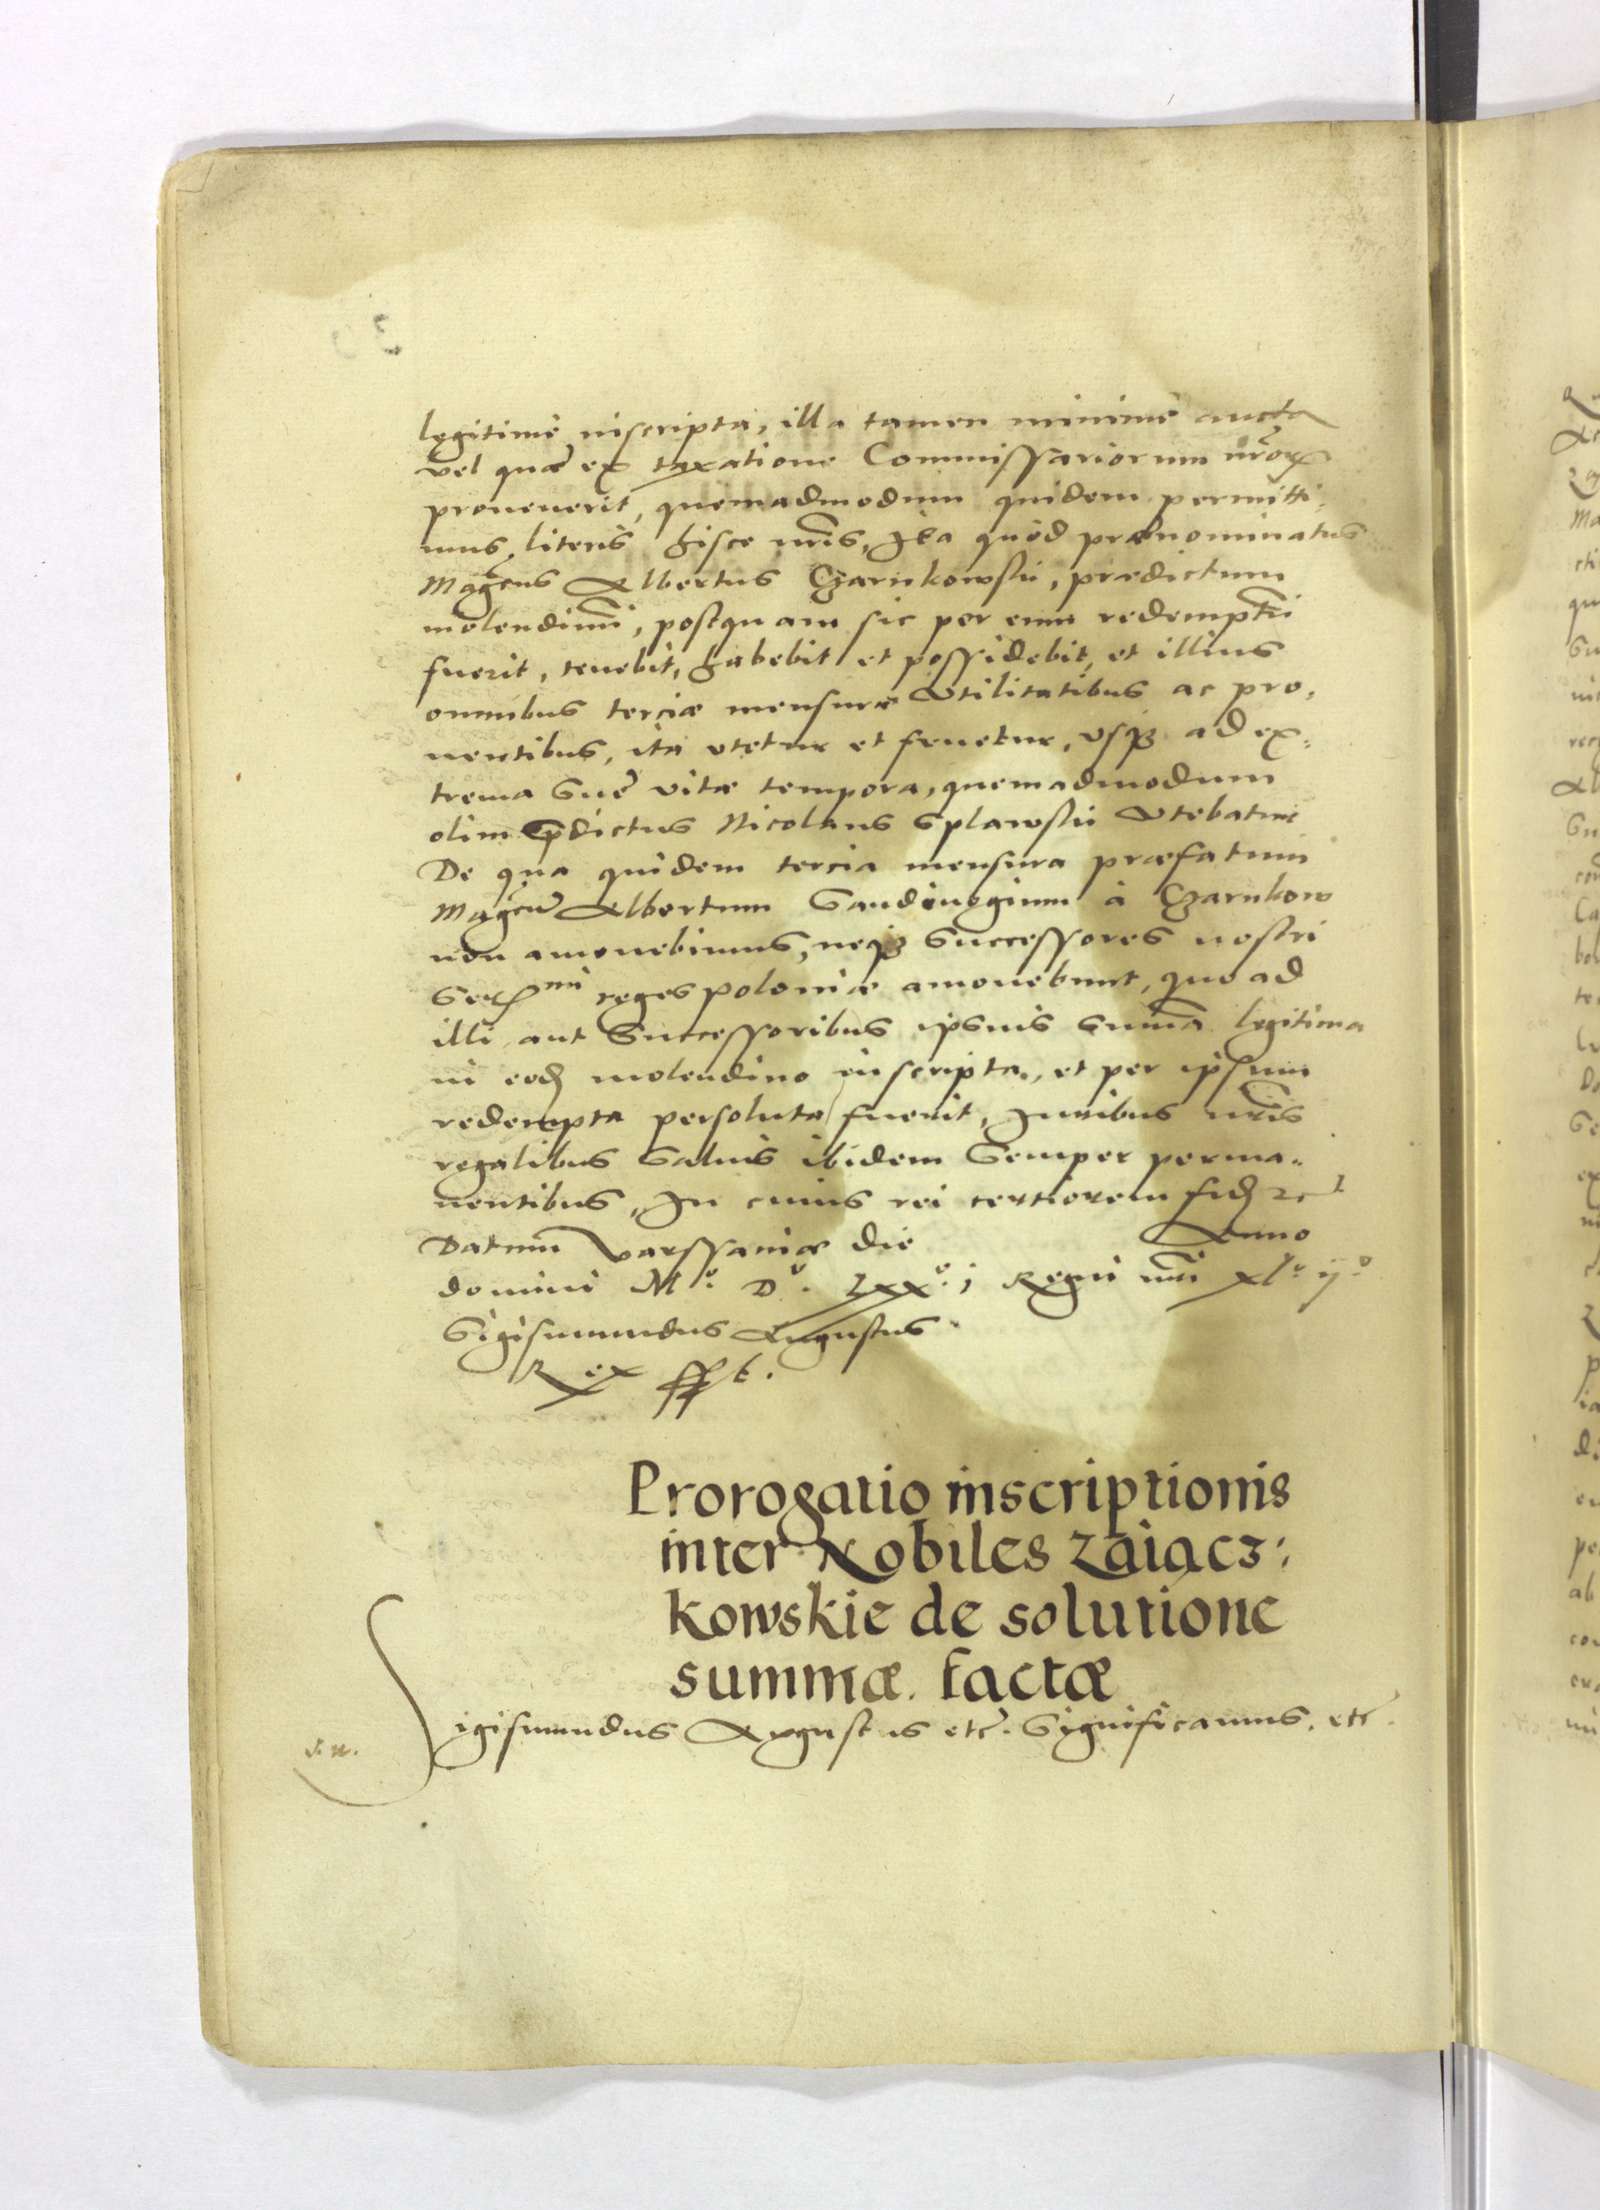 legitimè inscripta, illa tamen minimè aucta
vel quæ ex taxatione Commissariorum nrōꝝ
provenerit, quemadmodum quidem permitti-
mus, literis hisce nris̄, Ita quòd prænominatus
Magcus̄ Albertus Czarnkowski, prædictum
molendinū, postquam sic per eum redemptū
fuerit, tenebit, habebit et possidebit, et illius
omnibus terciæ mensuræ Vtilitatibus ac pro,
uentibus, ita vtetur et fruetur, vsqꝫ ad ex-
trema suę vitæ tempora, quemadmodum
olim p̄dictus Nicolaus Splawski Vtebatur
De qua quidem tercia mensura præfatum
Magcū Albertum Sandiuogium à Czarnkow
non amouebimus, neqꝫ Successores nostri
Serꝰᵐⁱ reges Poloniæ amouebunt, quo ad
illi aut Successoribus ipsius Sumā legitima
in eod molendino inscripta, et per ipsum
redempta persoluta fuerit, Iuribus nris̄
regalibus Saluis ibidem Semper perma-
nentibus, In cuius rei certiorem fid etc
Datum Varssauiæ die Anno
domini Mº. Dº. Lxxº. j Regni nrī xlº ijº
Sigismundus Augustus
Rex sst.
Prorogatio inscriptionis
inter Nobiles Zaiącz:
kowskie de solutione
summæ. factæ
Sigismundus Augustus etc. Significamus, etc
s. n.